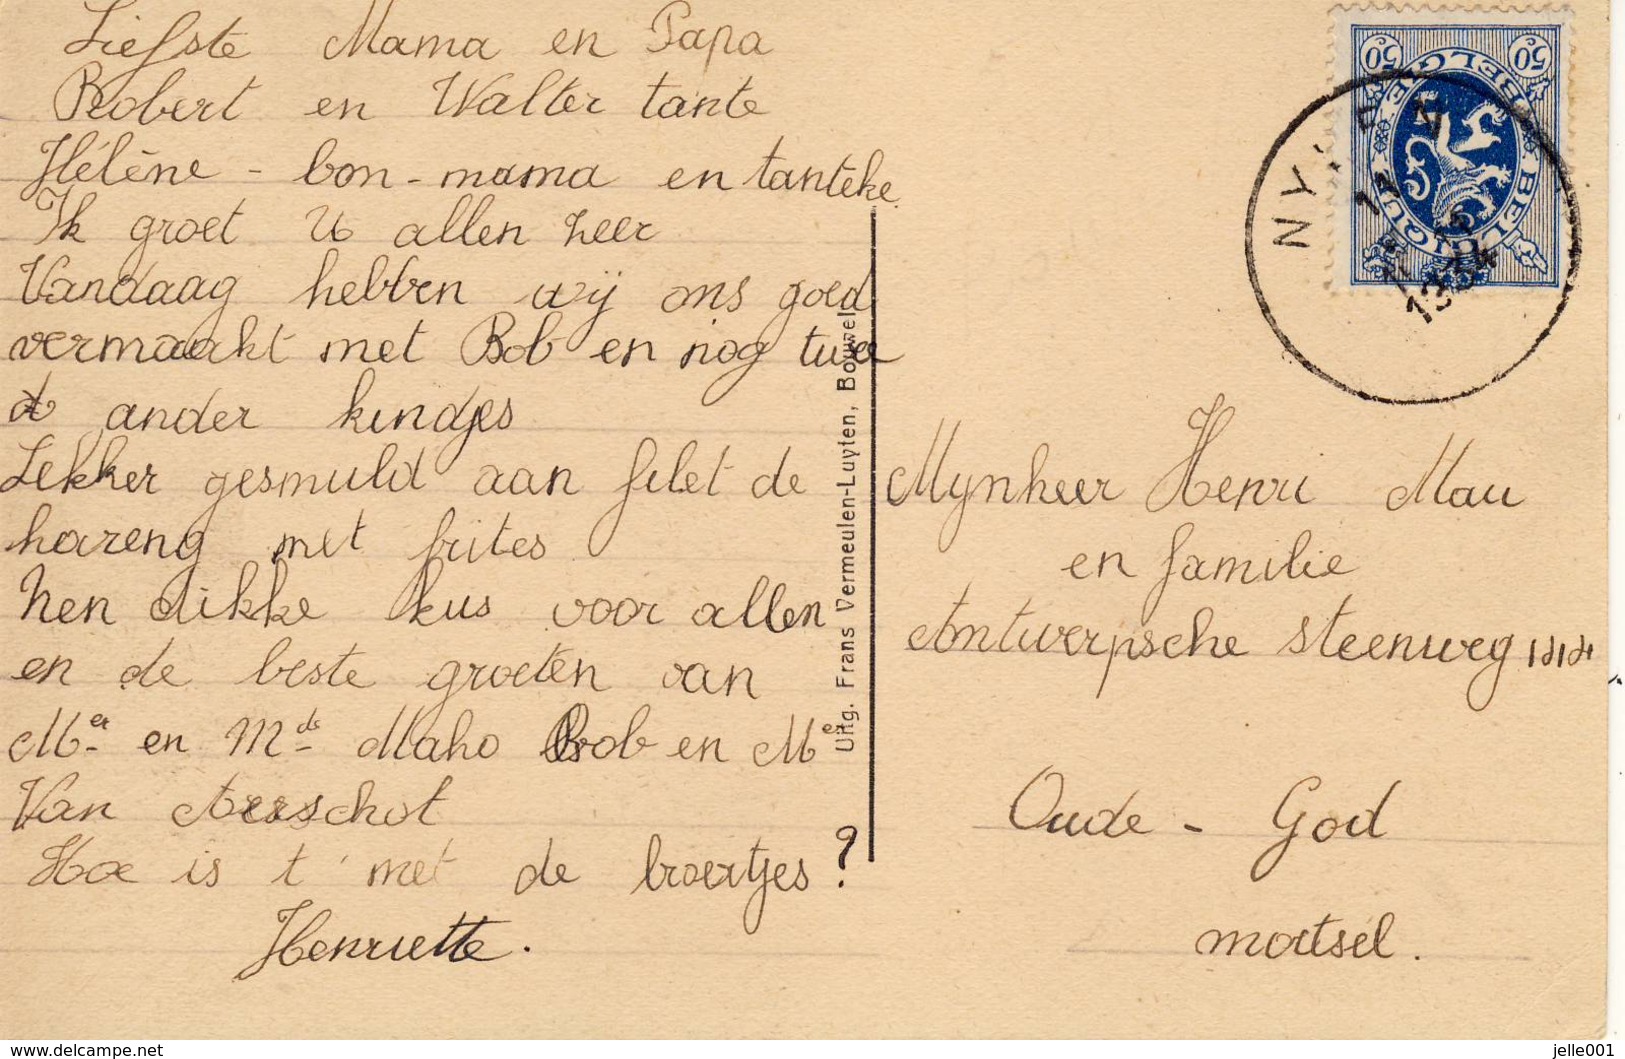 Liefste Mama en Papa
Robert en Walter tante
Hélène - bon-mama en tanteke
Ik groet U allen zeer
Vandaag hebben wij ons goed
vermaakt met Bob en nog twee
ander kindjes
Lekker gesmuld aan filet de
hareng met frites
Nen dikke kus voor allen
en de beste groeten van
Mer en Mde Maho Bob en Me
Van Aerschot
Hoe is t' met de broertjes?
Henriette.
Uitg. Frans Vermeulen-Luyten, Bouwel
50 50
BELGIE BELGIQUE
NY
Mynheer Henri Mau
en familie
Antwerpsche steenweg
Oude - God
mortsel.
https://www.delcampe.net
jelle001